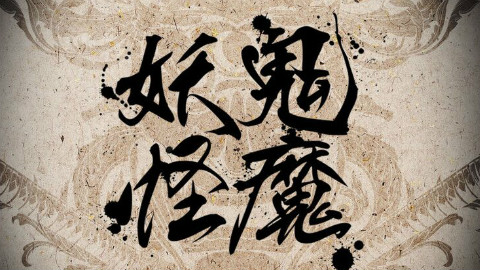 鬼魔
妖怪